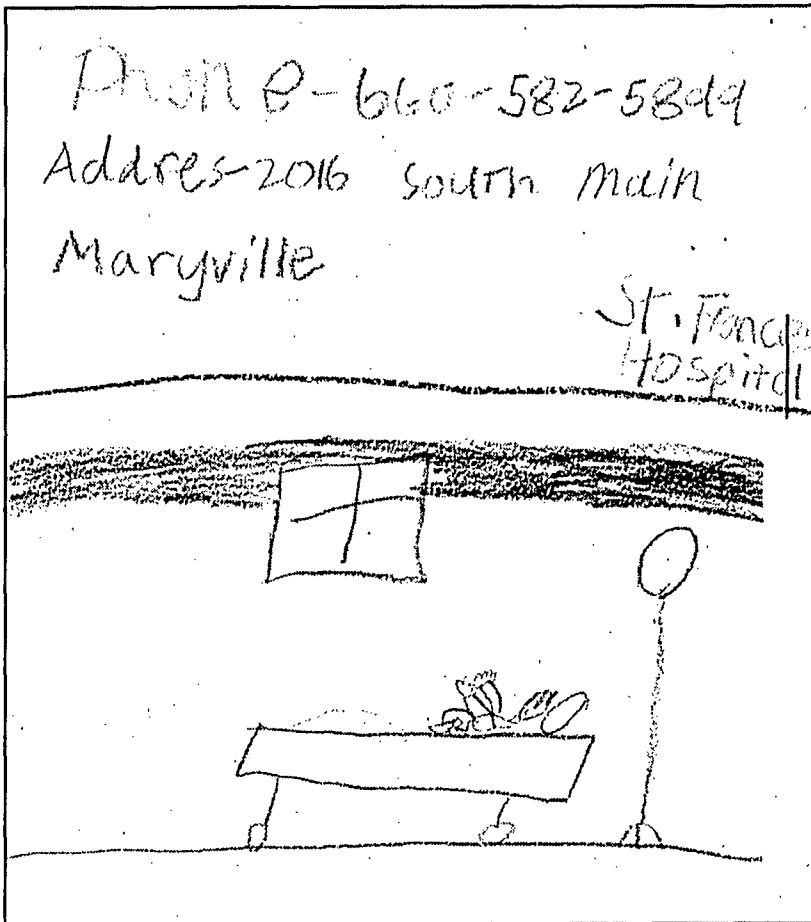 Phone-660-582-5899
Addres-2016 south main
Maryville
St. Francis
Hospital